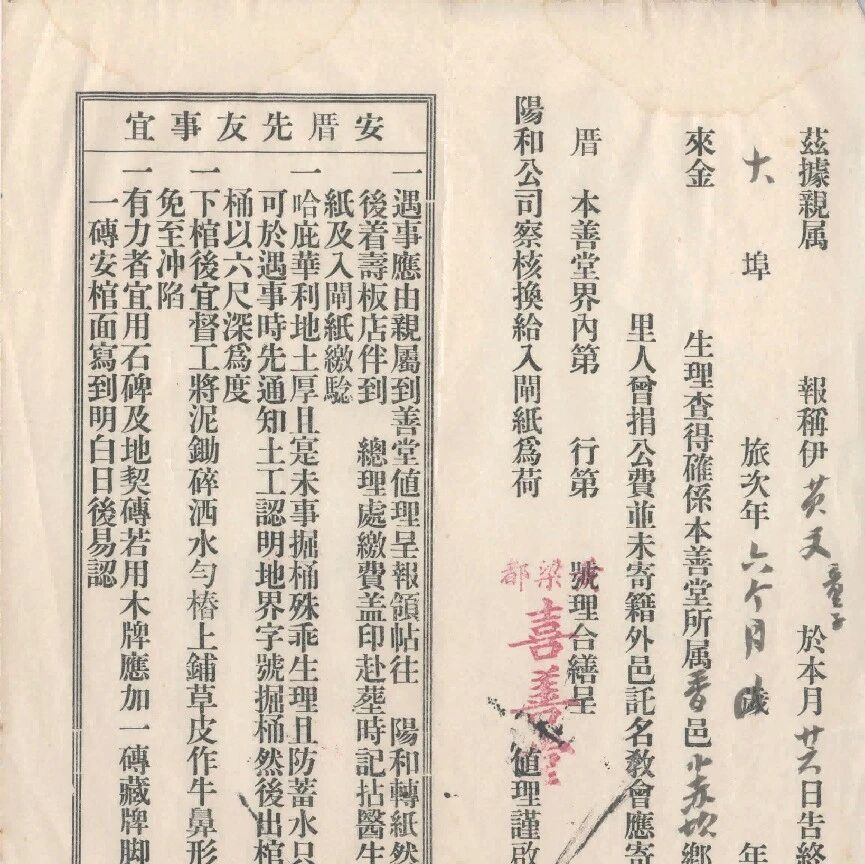 茲據親属 報稱伊 黄文 童子 於本月 廿六 日告終
大埠 旅次年 六个月 歲 年
來金 生理查得確係本善堂所属 香 邑 小赤坎 鄉
里人曾捐公費並未寄籍外邑託名教會應寄
厝 本善堂界內第 行第 號理合繕呈
陽和公司察核換給入閘紙爲荷
都 梁
喜善堂
値理謹啟
安厝先友事宜
一遇事應由親屬到善堂値理呈報領帖往 陽和轉紙然
後着壽板店伴到 總理處繳費盖印赴塟時記拈醫生
紙及入閘紙繳騐
一哈庇華利地土厚且寔未事掘桶殊乖生理且防蓄水只
可於遇事時先通知土工認明地界字號掘桶然後出棺
桶以六尺深爲度
一下棺後宜督工將泥鋤碎洒水勻樁上鋪草皮作牛鼻形
免至冲陷
一有力者宜用石碑及地契磚若用木牌應加一磚藏牌脚
一磚安棺面寫到明白日後易認